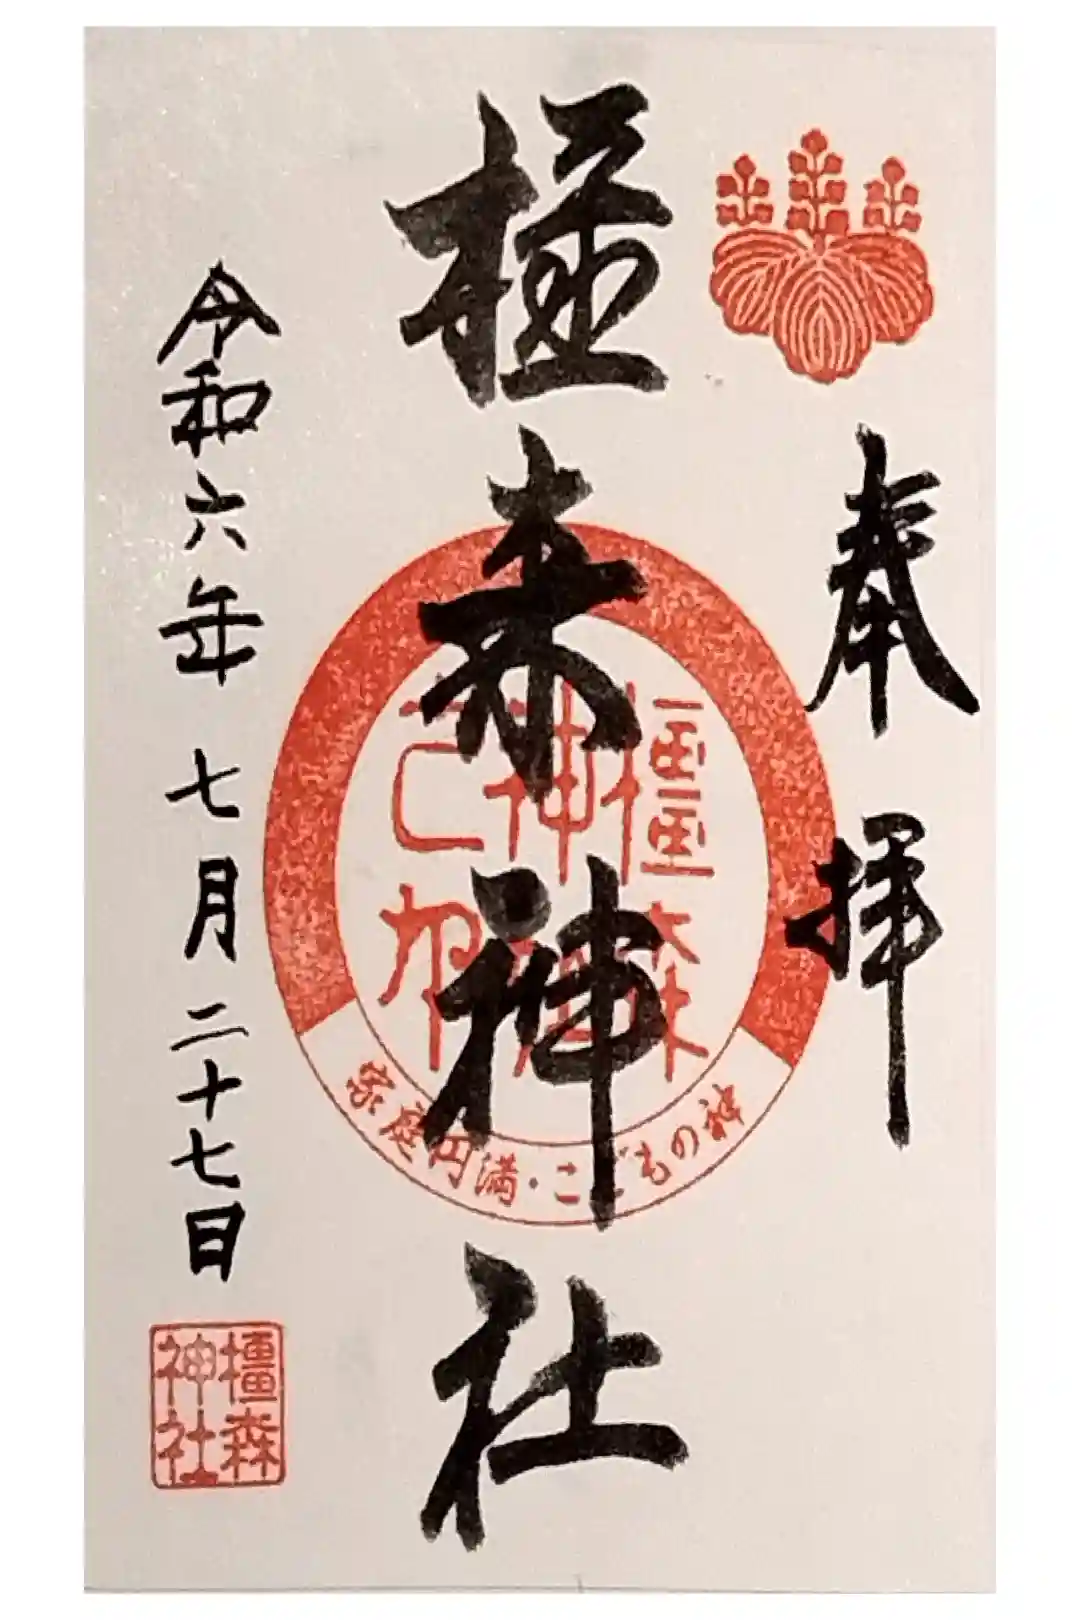 奉拝
橿森神社
橿森
神社
之印
家庭円満・こどもの神
令和六年七月二十七日
橿森
神社